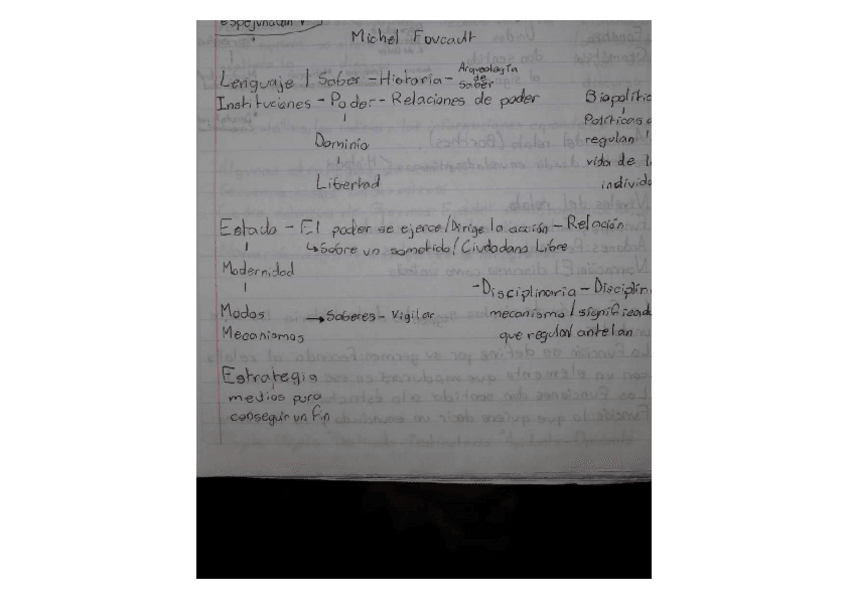 Michel Foucault
Lenguaje / Saber - Historia - Arqueología de Saber
Instituciones - Poder - Relaciones de poder
Dominio
Libertad
Biopolític
Políticas
regulan
vida de l
individ
Estado - El poder se ejerce / Dirige la acción - Relación
↳ Sobre un sometido / Ciudadano Libre
Modernidad
- Disciplinaria - Disciplin
Modos → Saberes - Vigilar
mecanismo / significad
Mecanismos
que regulan
Estrategia
medios para
conseguir un fin